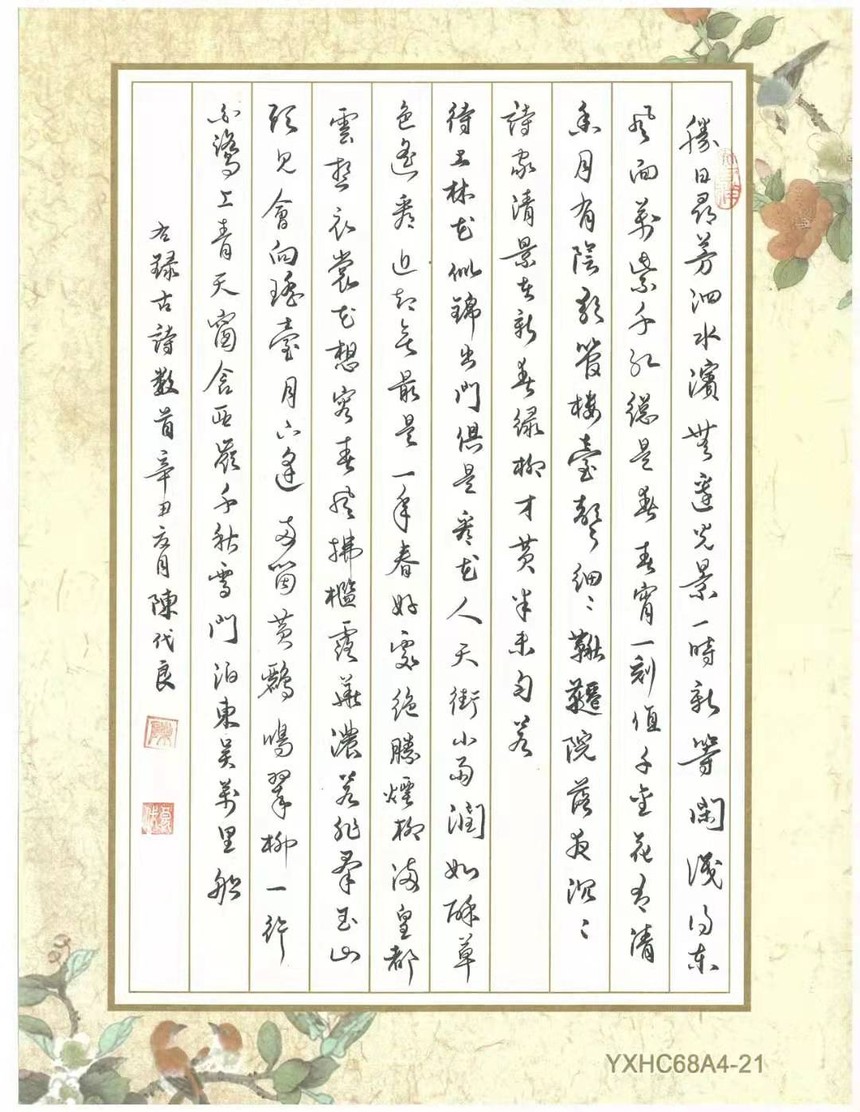 勝日尋芳泗水濱無邊光景一時新等閑識得東
風面萬紫千紅總是春春宵一刻值千金花有清
香月有陰歌管樓臺聲細〻鞦韆院落夜沉〻
詩家清景在新春綠柳才黃半未勻若
待上林花似錦出門俱是看花人天街小雨潤如酥草
色遙看近卻無最是一年春好處絕勝煙柳滿皇都
雲想衣裳花想容春風拂檻露華濃若非群玉山
頭見會向瑤臺月下逢兩箇黃鸝鳴翠柳一行
白鷺上青天窗含西嶺千秋雪門泊東吳萬里船
右錄古詩數首辛丑六月陳代良
YXHC68A4-21